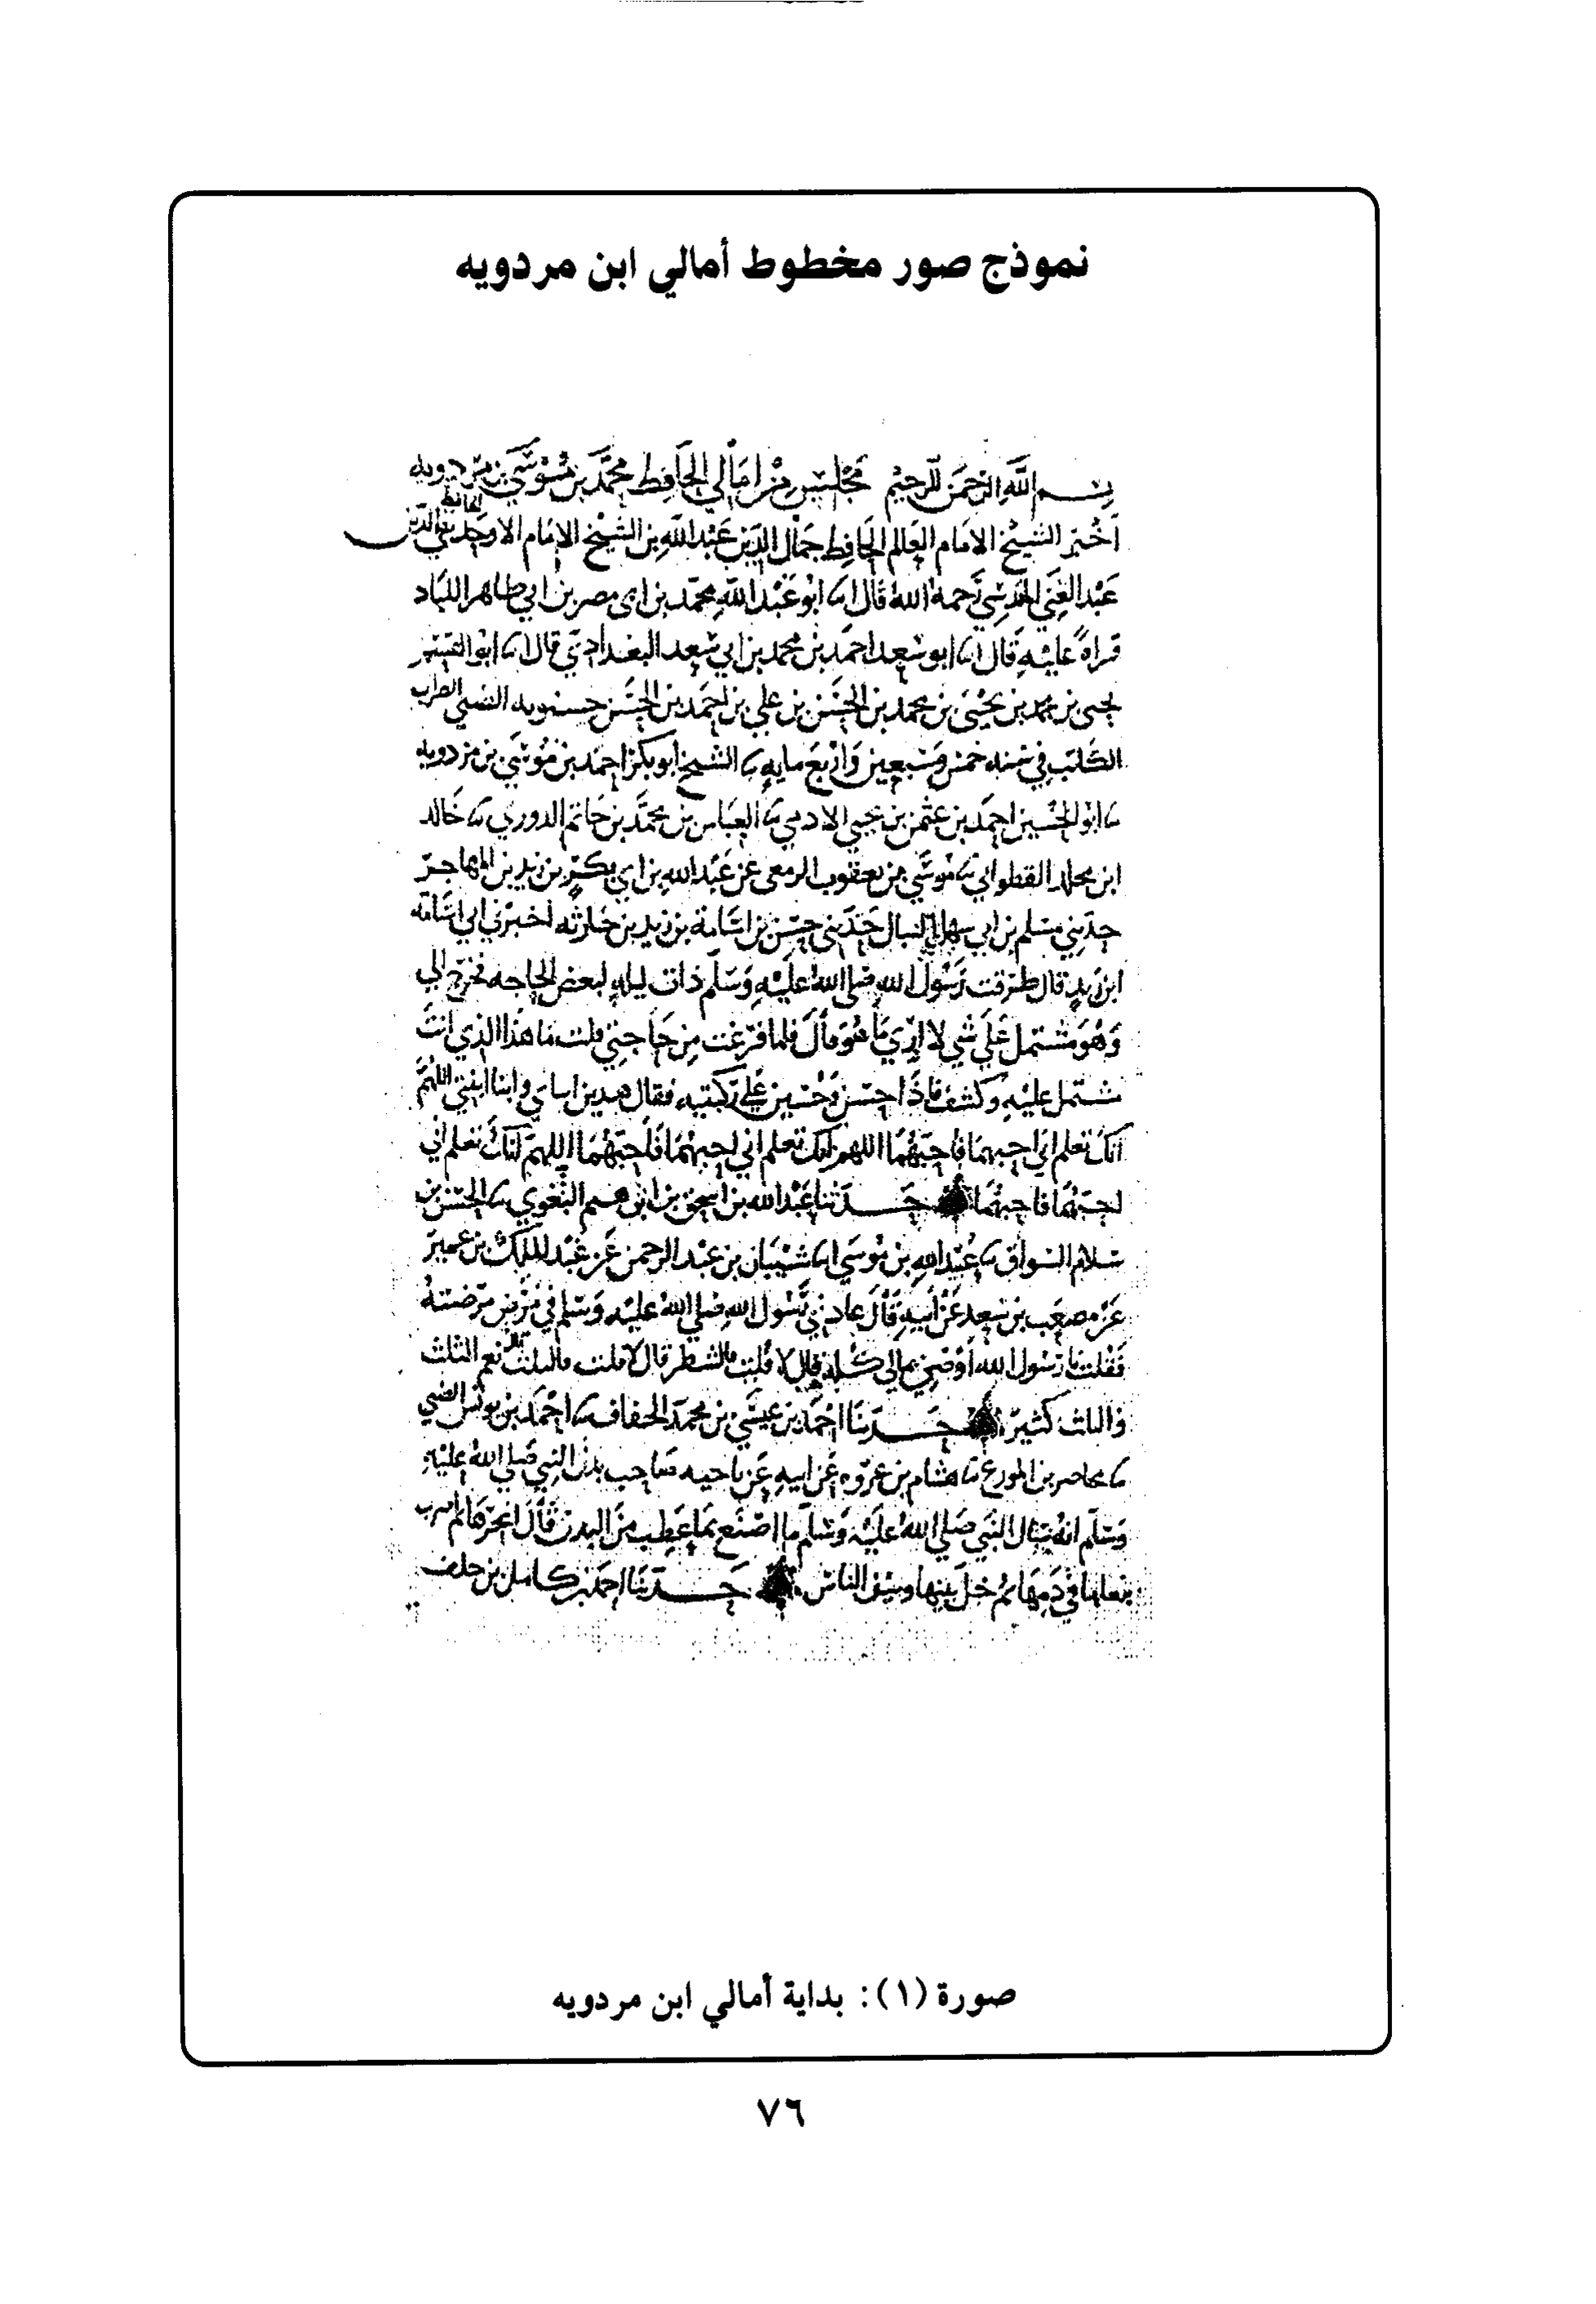 نموذج صور مخطوط أمالي ابن مردويه
بسم الله الرحمن الرحيم مجلس من امالي الحافظ محمد بن موسى بن مردويه
اخبر الشيخ الامام العالم الحافظ جمال الدين عبد الله بن الشيخ الامام الاوحد تقي الدين
عبد الغني المقدسي رحمه الله قال انا ابو عبد الله محمد بن ابي بن ابي طاهر اللباد
قراة عليه قال انا ابو سعد احمد بن محمد بن ابي سعد البغدادي قال انا ابو القسم
يحيى بن محمد بن يحيى بن محمد بن الحسن بن علي بن احمد بن الحسن حسنويه
الكاتب في سنه خمس وسبعين واربع مايه نا الشيخ ابو بكر احمد بن موسى بن مردويه
نا ابو الحسين احمد بن عثمن بن يحيى الادمي نا العباس بن محمد بن حاتم الدوري نا خالد
ابن مخلد القطواني نا موسى بن يعقوب الزمعى عن عبد الله بن ابي بكر بن زيد بن المهاجر
حدثني مسلم بن ابي سهل النبال حدثني حسن بن اسامة بن زيد بن حارثه اخبرني ابي اسامة
ابن زيد قال طرقت رسول الله صلى الله عليه وسلم ذات ليله لبعض الحاجه فخرج الي
وهو مشتمل على شي لا ادري ما هو قال فلما فرغت من حاجتي قلت ما هذا الذي انت
مشتمل عليه وكشف فاذا حسن وحسين على ركبتيه فقال هذين ابناي وابنا ابنتي اللهم
انك تعلم اني احبهما فاحبهما اللهم انك تعلم اني احبهما فاحبهما اللهم انك تعلم اني
احبهما فاحبهما حدثنا عبد الله بن اسحق بن ابرهيم البغوي نا الحسن بن
سلام السواق نا عبيد الله بن موسى انا شيبان بن عبد الرحمن عن عبد الملك بن عمير
عن مصعب بن سعد عن ابيه قال عادني رسول الله صلى الله عليه وسلم في مرض مرضته
فقلت يا رسول الله اوصي بمالي كله قال لا قلت فالشطر قال لا قلت فالثلث قال نعم الثلث
والثلث كثير حدثنا احمد بن عيسى بن محمد الخفاف نا احمد بن يونس الضبي
نا محاضر بن المورع نا هشام بن عروه عن ابيه عن ناجيه صاحب بدن النبي صلى الله عليه
وسلم انه سال النبي صلى الله عليه وسلم ما اصنع بما عطب من البدن قال انحرها ثم اضرب
بنعلها في دمها ثم خل بينها وبين الناس حدثنا احمد بن كامل بن خلف
صورة (١): بداية أمالي ابن مردويه
٧٦